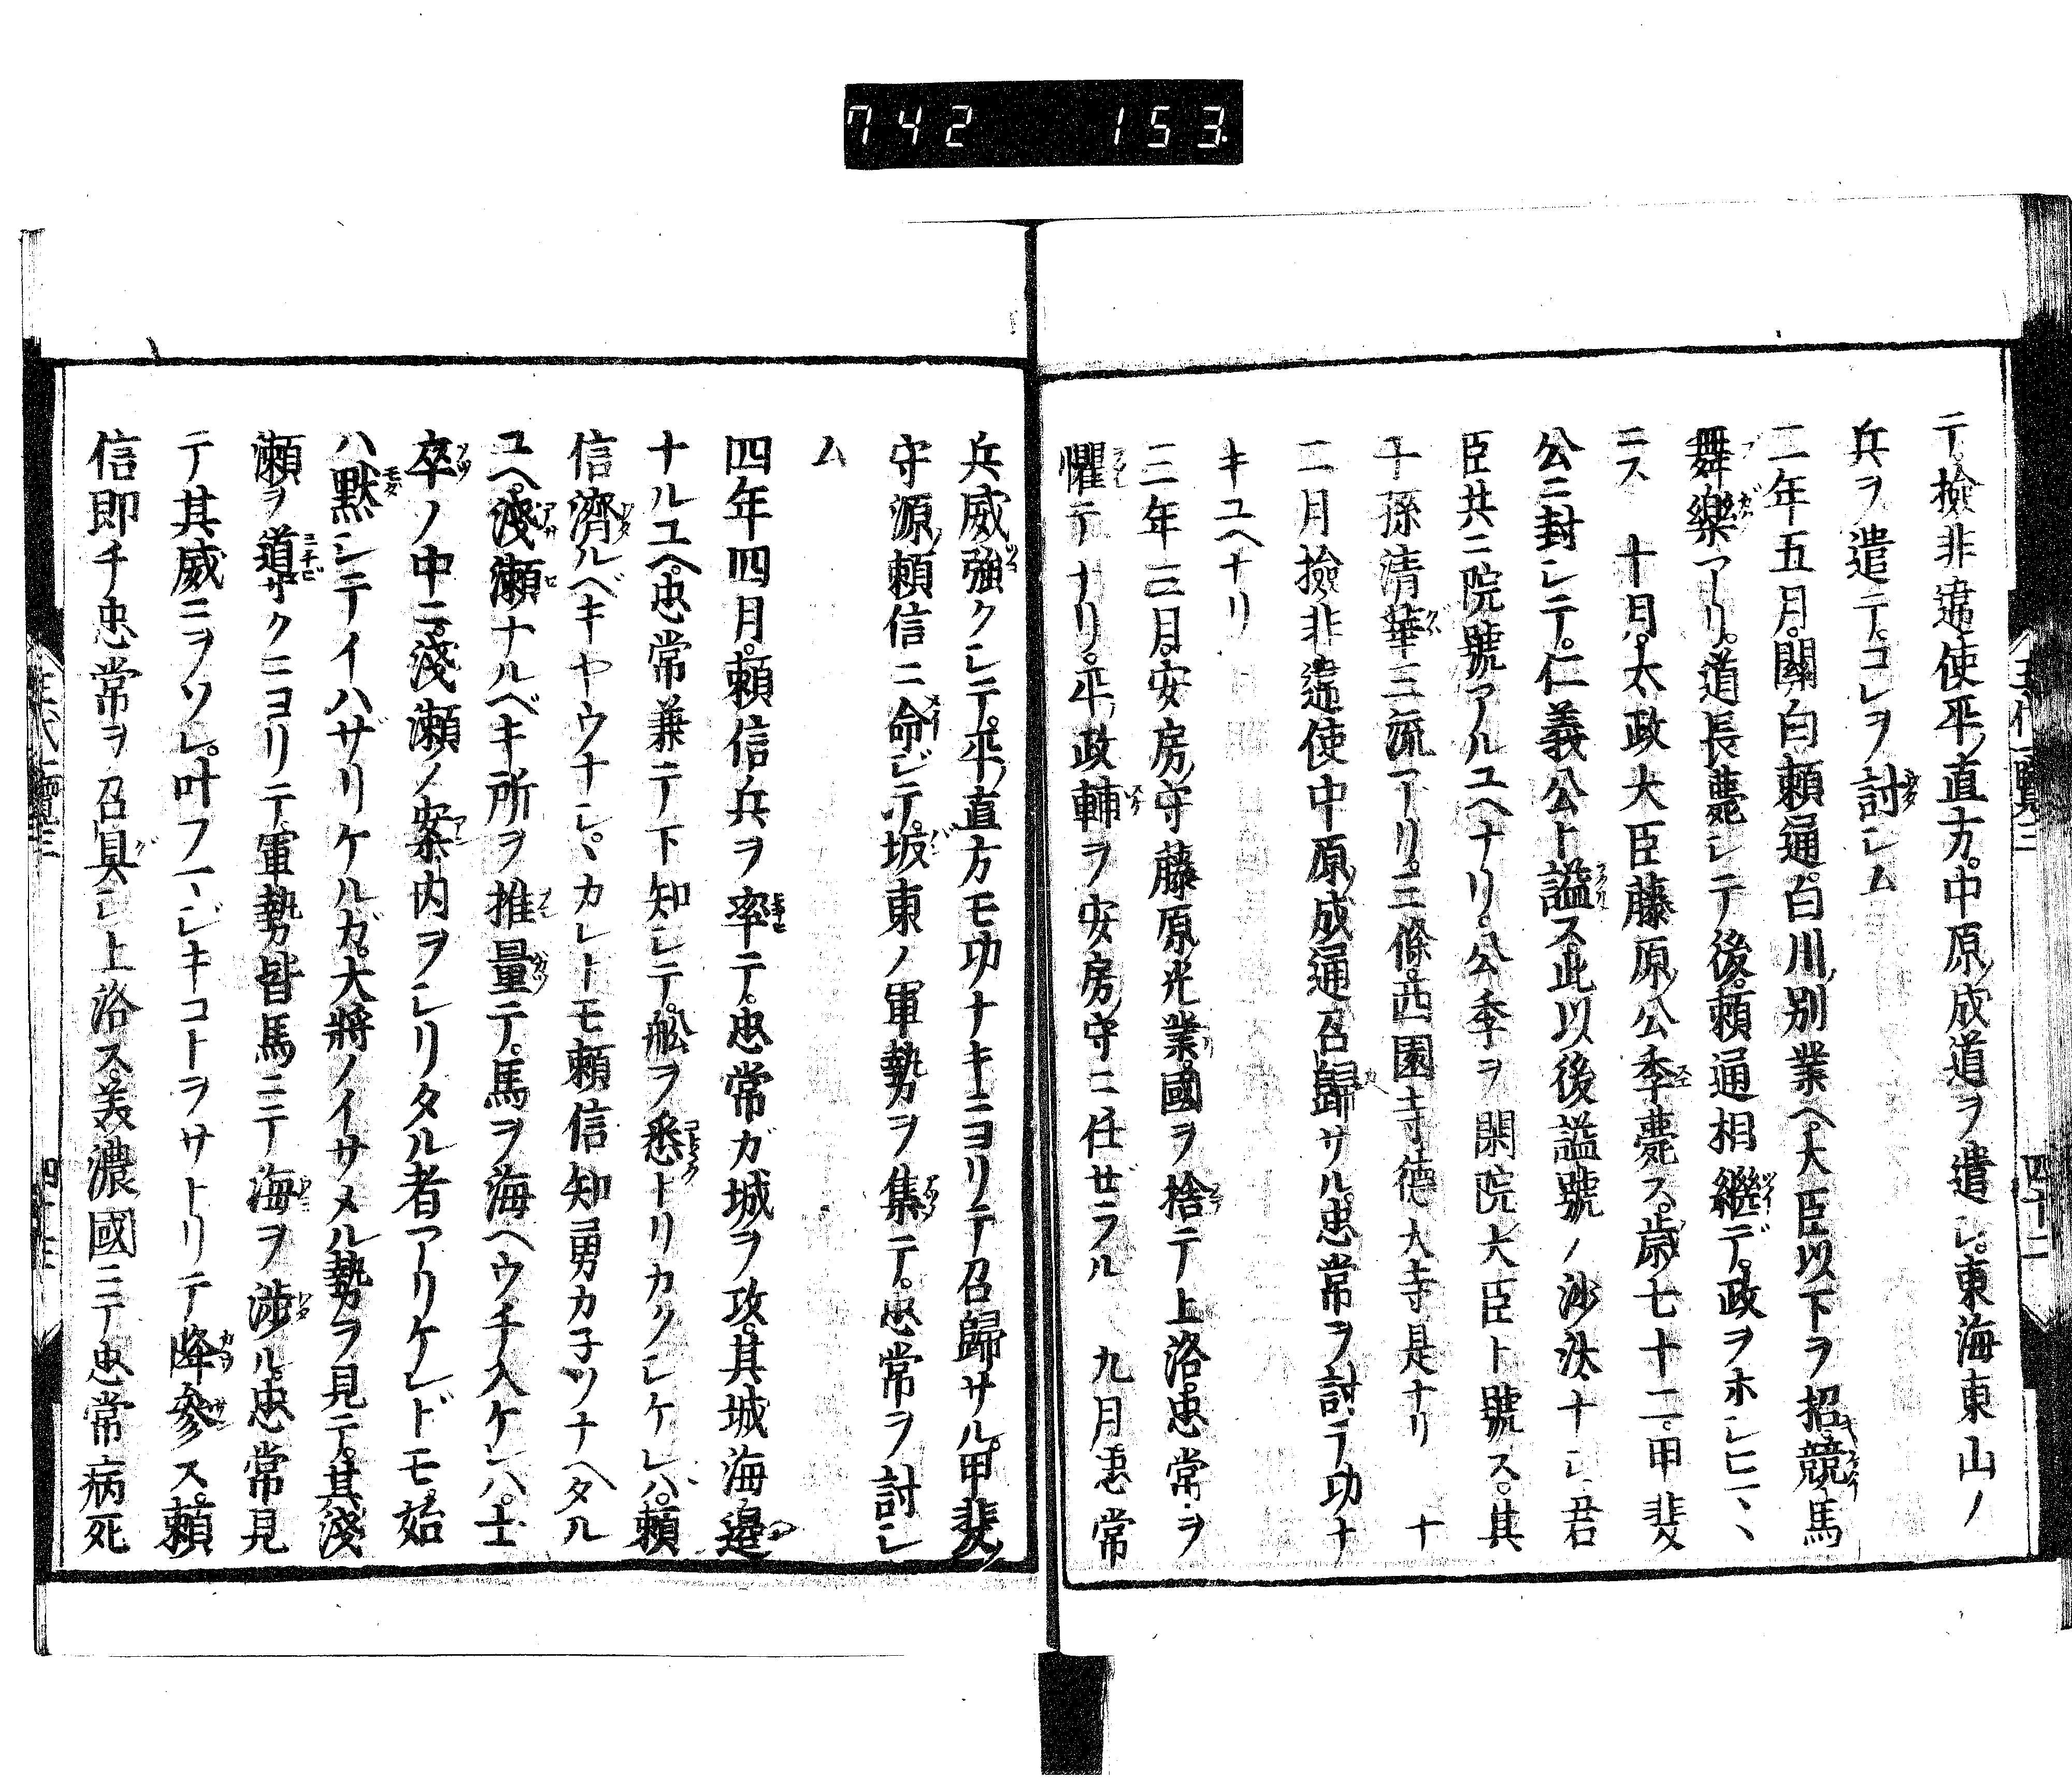 742 153
テ。檢非違使平ノ直方。中原ノ成道ヲ遣シ。東海東山ノ
兵ヲ遣テ。コレヲ討シム
二年五月。關白頼通。白川ノ別業ヘ。大臣以下ヲ招。競馬
舞樂アリ。道長薨シテ後。頼通相繼デ。政ヲホシヒヽヽ
ニス 十月。太政大臣藤原ノ公季薨ス。歳七十二。甲斐
公ニ封シテ。仁義公ト謚ス。此以後謚號ノ沙汰ナシ。君
臣共ニ院號アルユヘナリ。公季ヲ閑院大臣ト號ス。其
子孫清華三流アリ。三條。西園寺。德大寺是ナリ 十
二月檢非違使中原ノ成通召歸サル。忠常ヲ討テ功ナ
キユヘナリ
三年三月。安房ノ守藤原ノ光業。國ヲ捨テ上洛。忠常ヲ
懼テナリ。平ノ政輔ヲ安房ノ守ニ任ゼラル 九月忠常
兵威強クシテ。平ノ直方モ功ナキニヨリテ召歸サル。甲斐ノ
守源ノ頼信ニ命ジテ。坂東ノ軍勢ヲ集テ。忠常ヲ討シ
ム
四年四月。頼信兵ヲ率テ。忠常ガ城ヲ攻。其城海邊
ナルユヘ。忠常兼テ下知シテ。舩ヲ悉トリカクシケレバ。頼
信濟ルベキヤウナシ。シカレトモ頼信知勇カ子ツナヘタル
ユヘ。淺瀬ナルベキ所ヲ推量テ。馬ヲ海ヘウチ入ケレハ。士
卒ノ中ニ。淺瀬ノ案内ヲシリタル者アリケレドモ。始
ハ黙シテイハザリケルガ。大將ノイサメル勢ヲ見テ。其淺
瀬ヲ道ザクニヨリテ軍勢皆馬ニテ海ヲ渉ル。忠常見
テ其威ニヲソレ。叶フマジキコトヲサトリテ降參ス。頼
信即チ忠常ヲ召具シ上洛ス。美濃國ニテ忠常病死
王代一覽三 四十二